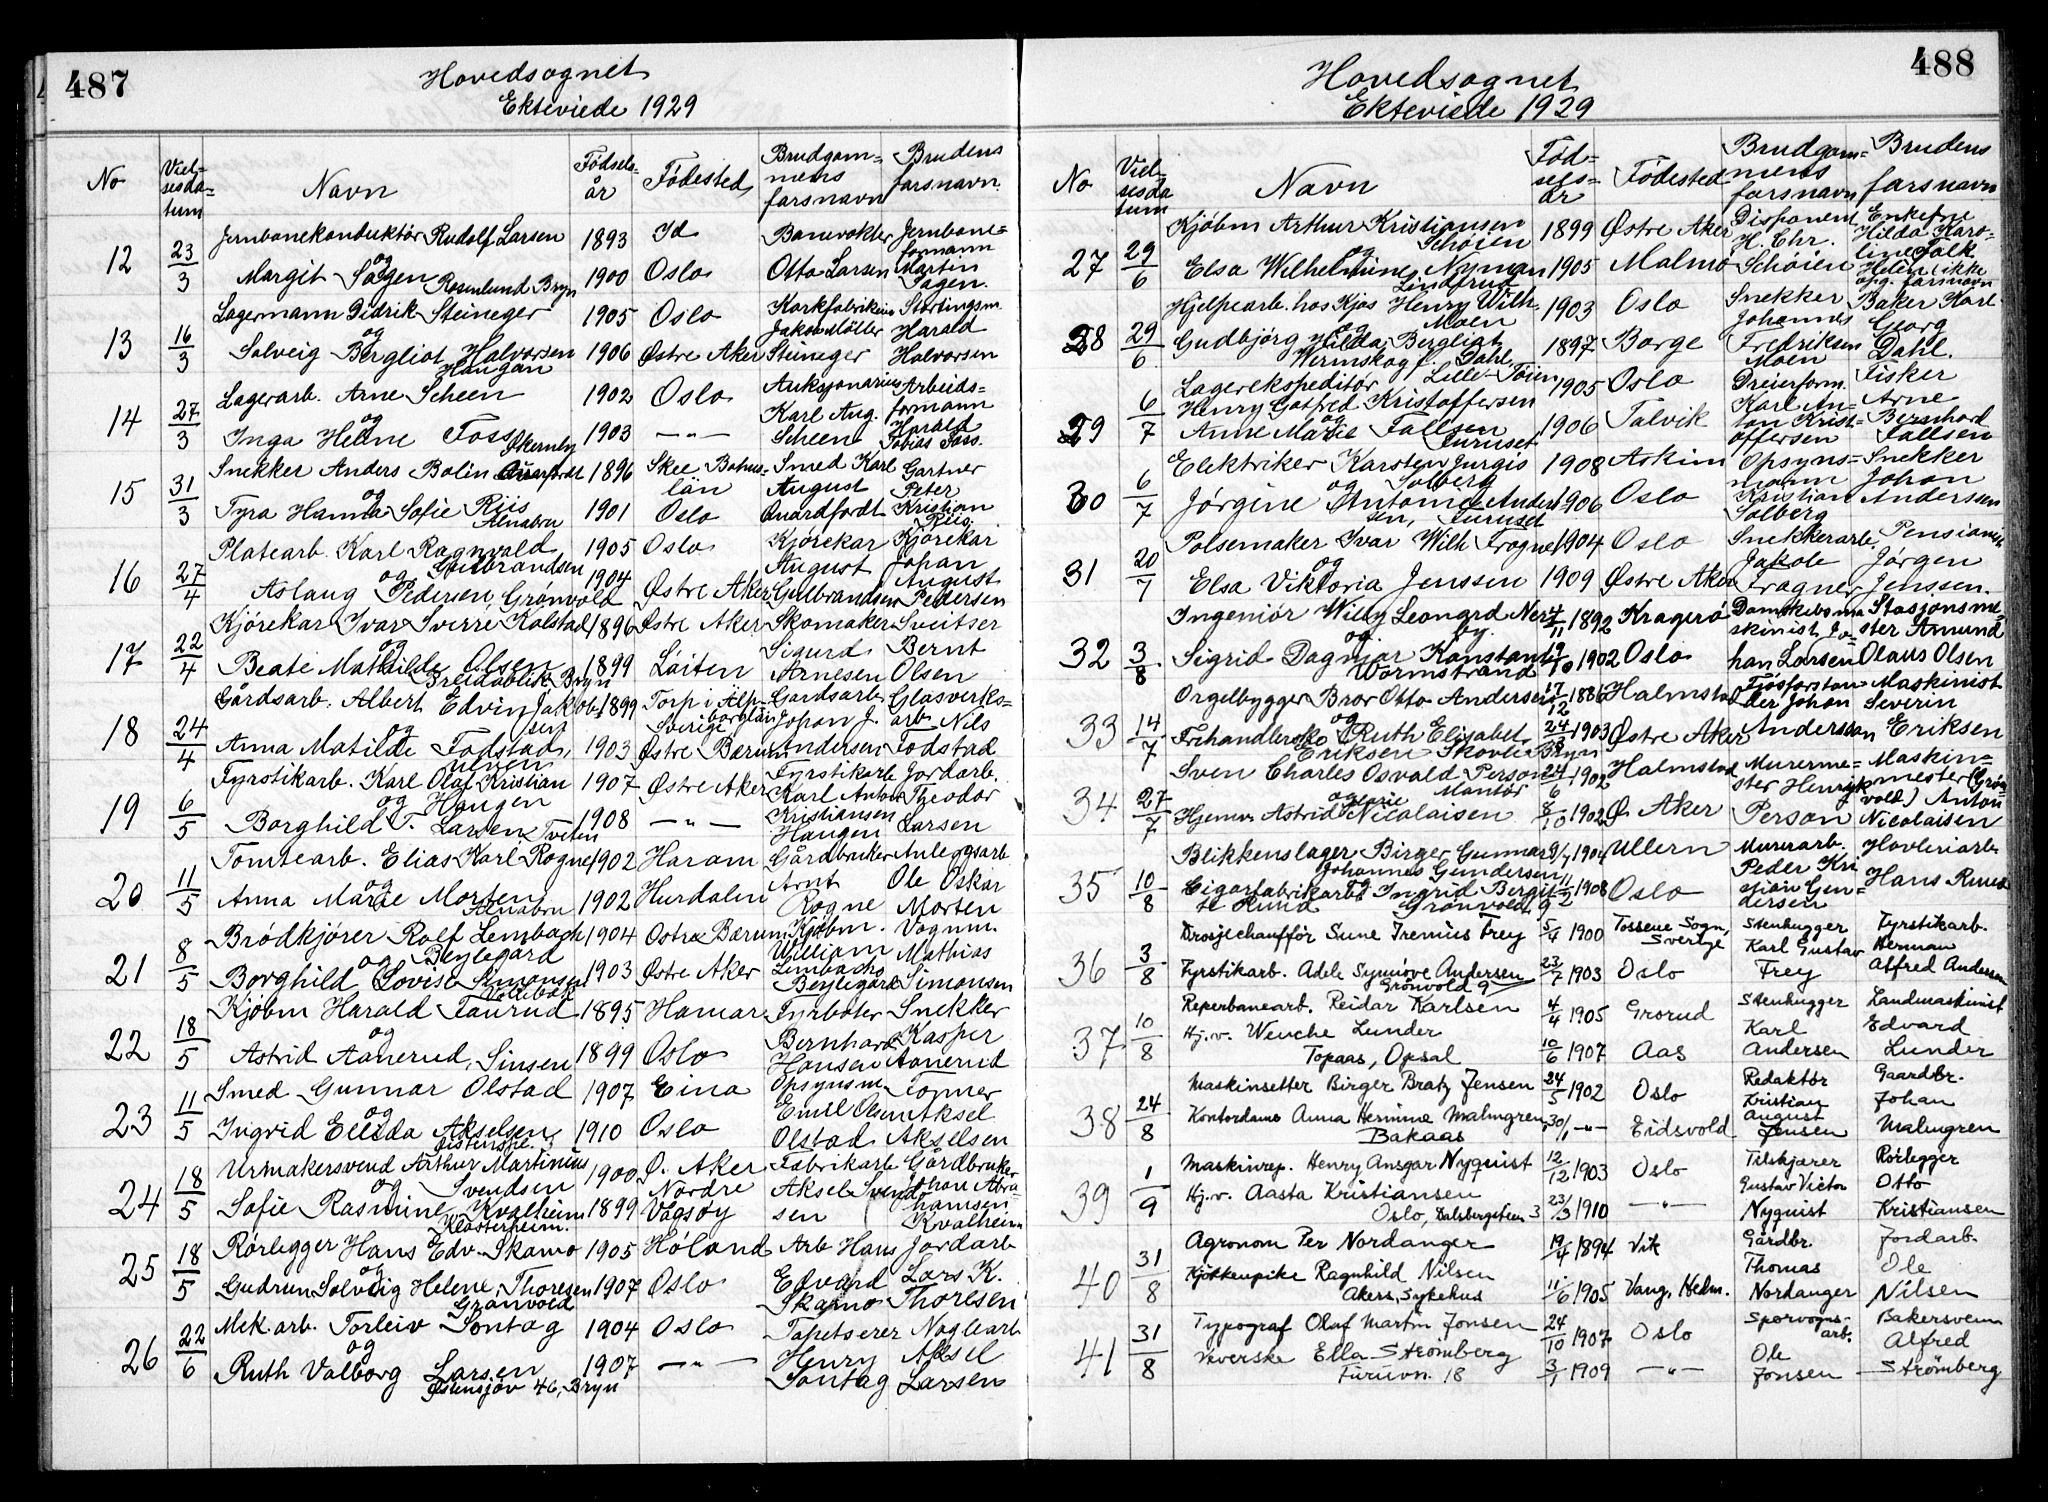 487
Hovedsognet
Ekteviede 1929
No
Viel-
sesda-
tum
Navn
Fødsels-
år
Fødested
Brudgom-
mens
farsnavn
Brudens
farsnavn
12 23/3 Jernbanekonduktør Rudolf Larsen 1893 Id Banevokter Otto Larsen Jernbane-
formann Martin Sagen
og
Margit Sagen Rosenlund Bryn 1900 Oslo
13 16/3 Lagermann Didrik Steineger 1905 Oslo Steineger Stortingsm. Harald Halvorsen
og
Solveig Bergliot Halvorsen Haugan 1906 Østre Aker
14 27/3 Lagerarb. Arne Scheen 1902 Oslo Auksjonarius Karl Aug. Scheen Arbeids-
formann Harald Tobias Foss.
og
Inga Helene Foss Økernby 1903 — " —
15 31/3 Snekker Anders Bolin 1896 Skee Bohus-
län Smed Karl August Gartner Peter Kristian Riis
og
Tyra Hanna Sofie Riis Alnabru 1901 Oslo
16 27/4 Platearb. Karl Ragnvald Gulbrandsen 1905 Oslo Kjørekar August Gulbrandsen Kjørekar Johan August Pedersen
og
Aslaug Pedersen, Grønvold 1904 Østre Aker
17 22/4 Kjørekar Ivar Sverre Kolstad 1896 Østre Aker Skomaker Sigurd Arnesen Sveitser Bernt Olsen
og
Beate Mathilde Olsen Breidablik Bryn 1899 Løiten
18 24/4 Gårdsarb. Albert Edvin Jakob- 1899 Torp i Älv-
borglän Sverige Gårdsarb. Johan J. Andersen Glasverks-
arb. Nils Todstad
sen og
Anna Matilde Todstad, Ulven 1903 Østre Bærum
19 6/5 Fyrstikarb. Karl Olaf Kristian 1907 Østre Aker Fyrstikarb. Karl Anton Kristiansen Haugen Jordarb. Theodor Larsen
og Haugen
Borghild T. Larsen, Tveten 1908 — " —
20 11/5 Tomtearb. Elias Karl Rogne 1902 Haram Gårdbruker Arnt Rogne Anleggsarb. Ole Oskar Morten
og
Anna Marie Morten Alnabru 1902 Hurdalen
21 8/5 Brødkjører Rolf Lembach 1904 Østre Bærum Kjøbm. William Lembachs Beylegard Vognm. Mathias Simonsen
og Beylegard
Borghild Lovise Simonsen 1903 Østre Aker
22 18/5 Kjøbm Harald Faurud 1895 Hamar Fyrbøter Bernhard Hansen Snekker Kasper Aanerud
og
Astrid Aanerud, Sinsen 1899 Oslo
23 11/5 Smed Gunnar Olstad 1907 Eina Opsynsm. Emil Olsen Olstad Aksel Akselsen
og
Ingrid Elida Akselsen 1910 Oslo
24 18/5 Urmakersvend Arthur Martinius 1900 Ø. Aker Fabrikarb. Aksel Svend-
sen Gårdbruker Johan Abra-
hamsen Kvalheim
og Svendsen
Sofie Rasmine Kvalheim Klosterheim. 1899 Nordre Vågsøy
25 18/5 Rørlegger Hans Edv. Skamo 1905 Høland Arb Hans Edvard Skamo Jordarb. Lars K. Thoresen
og
Gudrun Solveig Helene Thoresen Grønvold 1907 Oslo
26 22/6 Mek. arb. Torleiv Sontag 1904 Oslo Tapetserer Henry Sontag Naglearb. Aksel Larsen
og
Ruth Valborg Larsen Østensjøv 46, Bryn 1907 — " —
488
Hovedsognet
Ekteviede 1929
No
Viel-
sesda
tum
Navn
Fød-
sels-
år
Fødested
Brudgom-
mens
farsnavn
Brudens
farsnavn
27 29/6 Kjøbm Arthur Kristiansen Schøien 1899 Østre Aker Disponent H. Chr. Schøien Enkefrue Hilda Karo-
line Falk Helén (ikke opg. farsnavn
og
Elsa Wilhelmine Nyman Lindrud 1905 Malmø
28 29/6 Hjelpearb. hos Kjøs Henry Wilh. Moen 1903 Oslo Snekker Johannes Fredriksen Moen Baker Karl Georg Dahl.
og
Gudbjørg Hilda Bergliot Dahl, 1897 Borge
29 6/7 Lagerekspeditør Lille-Tøien 1905 Oslo Dreierform. Karl An-
ton Krist-
offersen Fisker Arne Bernhard Fallsen
Henry Gotfred Kristoffersen
og
Anne Marie Fallsen Furuset 1906 Talvik
30 6/7 Elektriker Karsten Jurgis Solberg 1908 Askim Opsyns-
mann Kristian Solberg Snekker Johan Andersen
og
Jørgine Antonie Ander-
sen, Furuset 1906 Oslo
31 20/7 Pølsemaker Ivar Wilh Frogner 1904 Oslo Snekkerarb. Jakob Frogner Pensionist Jørgen Jenssen.
og
Elsa Viktoria Jenssen 1909 Østre Aker
32 3/8 Ingeniør Willy Leonard Ner-
by 4/11 1892 Kragerø Dampskibsma
skinist Jo-
han Larsen Stasjonsme-
ster Amund Olaus Olsen
og.
Sigrid Dagmar Konstanse Wormstrand 1902 Oslo
33 14/7 Orgelbygger Bror Otto Anderson 17/12 1886 Halmstad Johan Andersson Maskinist Severin Eriksen
og
Frk Ruth Elisabet Eriksen Bryn 1903 Østre Aker
34 27/7 Sven Charles Osvald Person 24/6 1902 Halmstad Murerme-
ster Henrik Person Maskin-
mester (Grøn-
vold) Anton Nicolaisen
og Montør
Hjemv. Astrid Marie Nicolaisen 8/10 1902 Ø. Aker
35 10/8 Blikkenslager Birger Gunnar 1904 Ullern Murerarb. Peder Kri
stian Gun-
dersen Høvleriarb. Hans Ruud
Johannes Gundersen
Cigarfabrikarb. Ingrid Bergit-
te Ruud Grønvold 9 11/2 1908 Oslo
36 3/8 Drosjechauffør Sune Irenius Frey 5/4 1900 Tossene Sogn, Sverige Stenhugger Karl Gustav Frey Fyrstikarb. Herman Alfred Andersen
Fyrstikarb. Adele Synnøve Andersen Grønvold 9 23/7 1903 Oslo
37 10/8 Reperbanearb. Reidar Karlsen 4/4 1905 Grorud Stenhugger Karl Andersen Landmaskinist Edvard Lunder
Hj.v. Wenche Lunder
Topaas, Opsal 10/6 1907 Aas
38 24/8 Maskinsetter Birger Bratz Jensen 24/5 1902 Oslo Redaktør Kristian August Jensen Gaardbr. Johan Malmgren
Kontordame Anna Hermine Malmgren, 30/1 — " — Eidsvold
Bakaas
39 1/9 Maskinrep. Henry Ansgar Nyquist 12/12 1903 Oslo Tilskjærer Gustav Victor Nyquist Rørlegger Otto Kristiansen
Hj.v. Aasta Kristiansen
Oslo, Dalsbergstien 3 23/3 1910 — " —
40 31/8 Agronom Per Nordanger 19/4 1894 Vik Gårdbr. Thomas Nordanger Jordarb. Ole Nilsen
Kjøkkenpike Ragnhild Nilsen
Akers, Sykehus 11/6 1905 Vang, Hedm.
41 31/8 Typograf Olaf Martin Jonsen 24/10 1907 Oslo Sporvogns-
arb. Ole Jonsen Bakersvenn Alfred Strömberg
Veverske Ella Strömberg
Furuvn. 18 3/1 1909 — " —